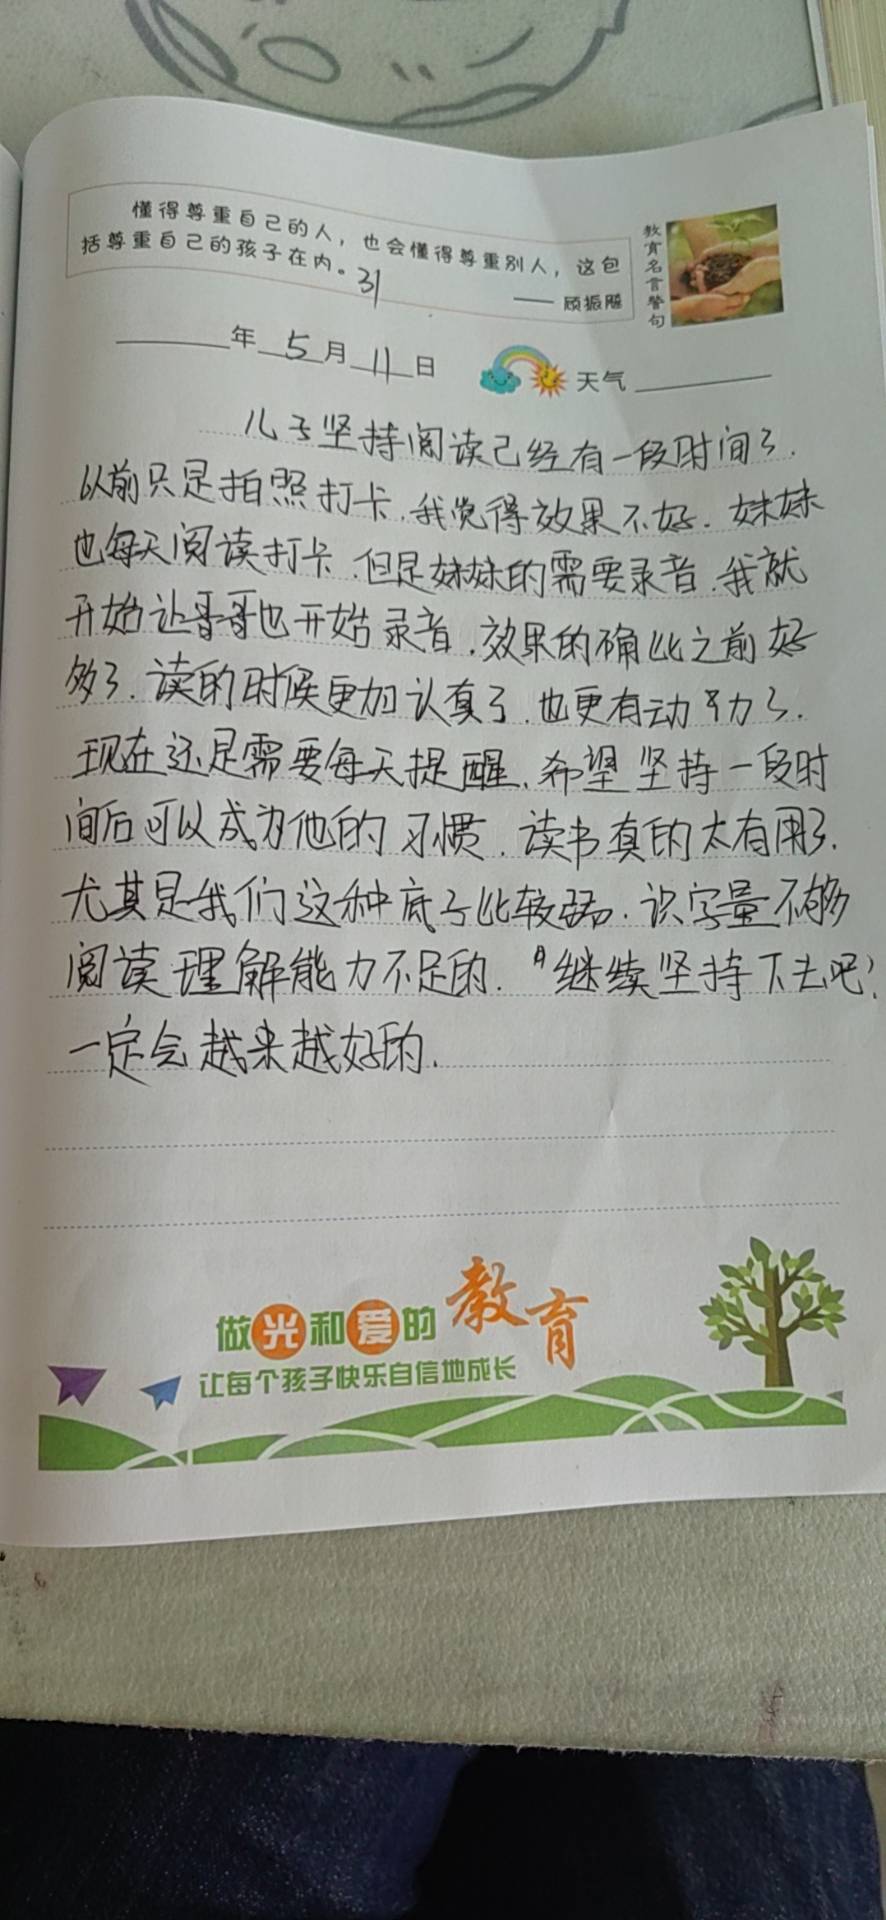 懂得尊重自己的人，也会懂得尊重别人，这包
括尊重自己的孩子在内。
31
—— 顾振飚
教育名言警句
年 5 月 11 日
天气
儿子坚持阅读已经有一段时间了.
以前只是拍照打卡.我觉得效果不好.妹妹
也每天阅读打卡.但是妹妹的需要录音.我就
开始让哥哥也开始录音.效果的确比之前好
多了.读的时候更加认真了.也更有动力了.
现在还是需要每天提醒.希望坚持一段时
间后可以成为他的习惯.读书真的太有用了.
尤其是我们这种底子比较弱.识字量不够
阅读理解能力不足的.继续坚持下去吧!
一定会越来越好的.
做光和爱的教育
让每个孩子快乐自信地成长